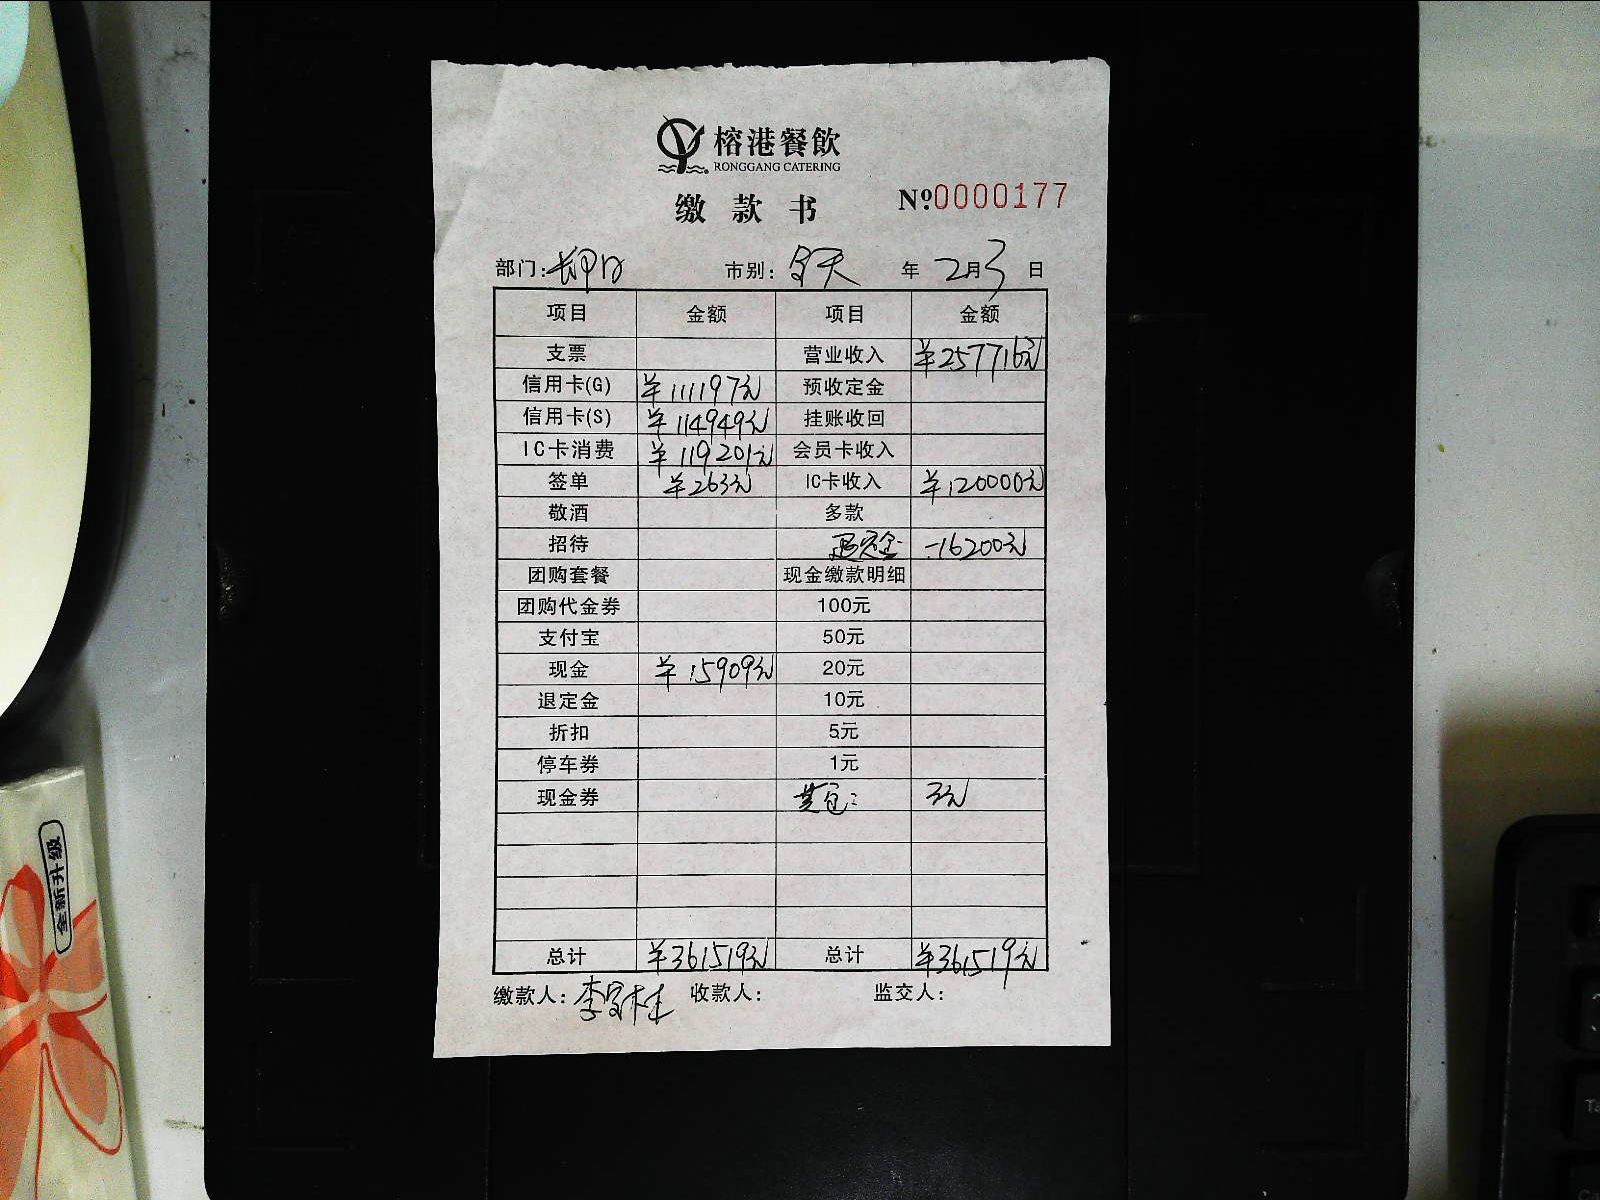 榕港餐飲
RONGGANG CATERING
缴款书
№0000177
部门: 市别: 全天 年 2月3日
项目 金额 项目 金额
支票 营业收入 ¥257716元
信用卡(G) ¥111197元 预收定金
信用卡(S) ¥114949元 挂账收回
IC卡消费 ¥119201元 会员卡收入
签单 ¥263元 IC卡收入 ¥120000元
敬酒 多款
招待 退定金 -16200元
团购套餐 现金缴款明细
团购代金券 100元
支付宝 50元
现金 ¥15909元 20元
退定金 10元
折扣 5元
停车券 1元
现金券 3元
总计 ¥361519元 总计 ¥361519元
缴款人: 收款人: 监交人:
全新升级